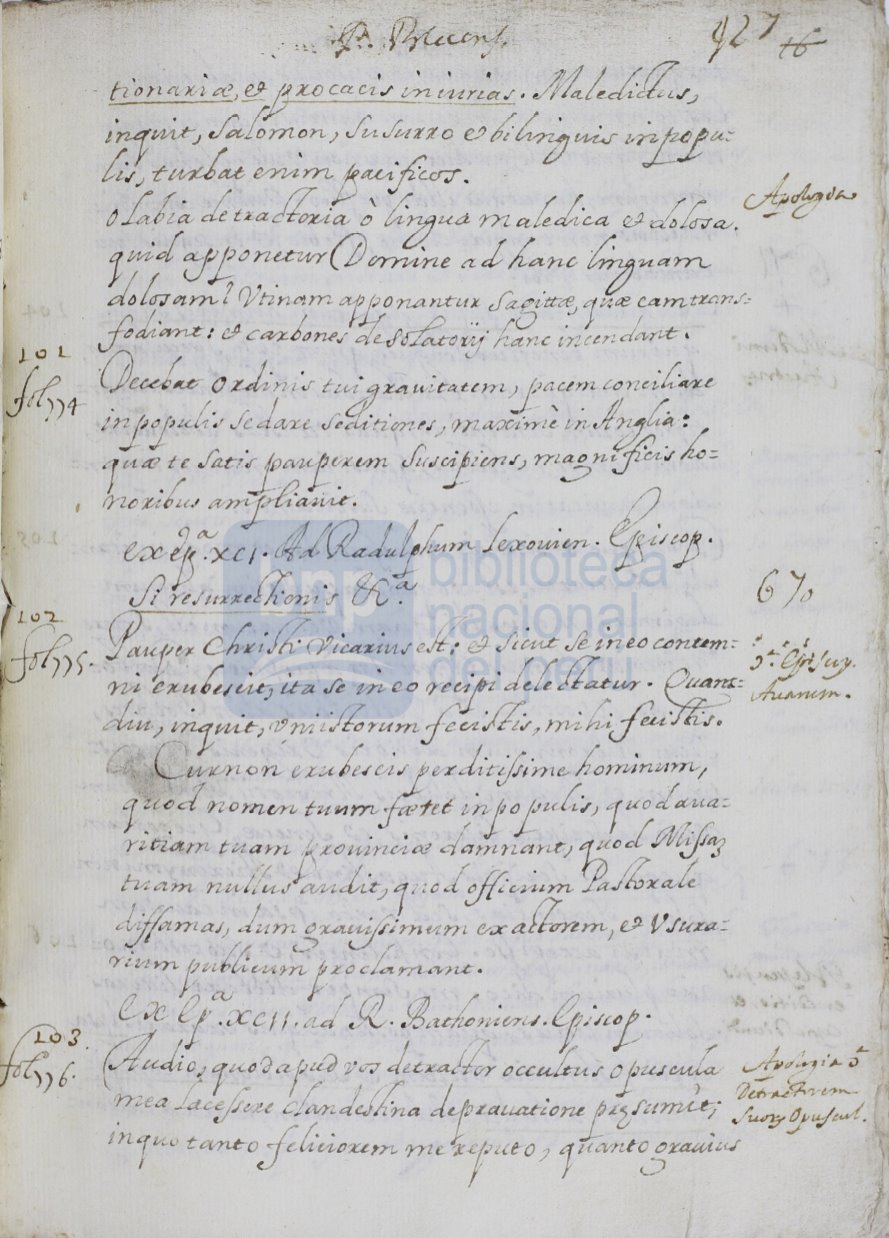 P. Blecens.
427
16
tionariæ, et procacis iniurias. Maledictus,
inquit, Salomon, susurro et bilinguis in popu=
lis, turbat enim pacificos.
O labia detractoria ò lingua maledica et dolosa.
Apologia
quid apponetur Domine ad hanc linguam
dolosam? Vtinam apponantur sagittæ, quæ eam trans=
fodiant: et carbones desolatorij hanc incendant.
101
fol 774
Decebat ordinis tui gravitatem, pacem conciliare
in populis sedare seditiones, maximè in Anglia:
quæ te satis pauperem suscipiens, magnificis ho=
noribus ampliavit.
ex ep.ª XCI. Ad Radulphum Lexovien. Episcop.
Si resurrectionis &c.ª
670
102
fol 775.
Pauper Christi vicarius est: et sicut se in eo contem=
ni erubescit, ita se in eo recipi delectatur. Quam=
Auarum.
diu, inquit, vni istorum fecistis, mihi fecistis.
Cur non erubescis perditissime hominum,
quod nomen tuum fœtet in populis, quod ava=
ritiam tuam provinciæ damnant, quod Missaȝ
tuam nullus audit, quod officium Pastorale
diffamas, dum gravissimum exactorem, et Vsura=
rium publicum proclamant.
Ex Ep.ª XCII. ad R. Bathoniens. Episcop.
103.
fol 776.
Audio, quod apud vos detractor occultus opuscula
Apologia ɔ̄
mea lacessere clandestina depravatione pręsumit;
Detractorem
suorȝ Opuscul.
in quo tanto feliciorem me reputo, quanto gravius
biblioteca
nacional
del perú